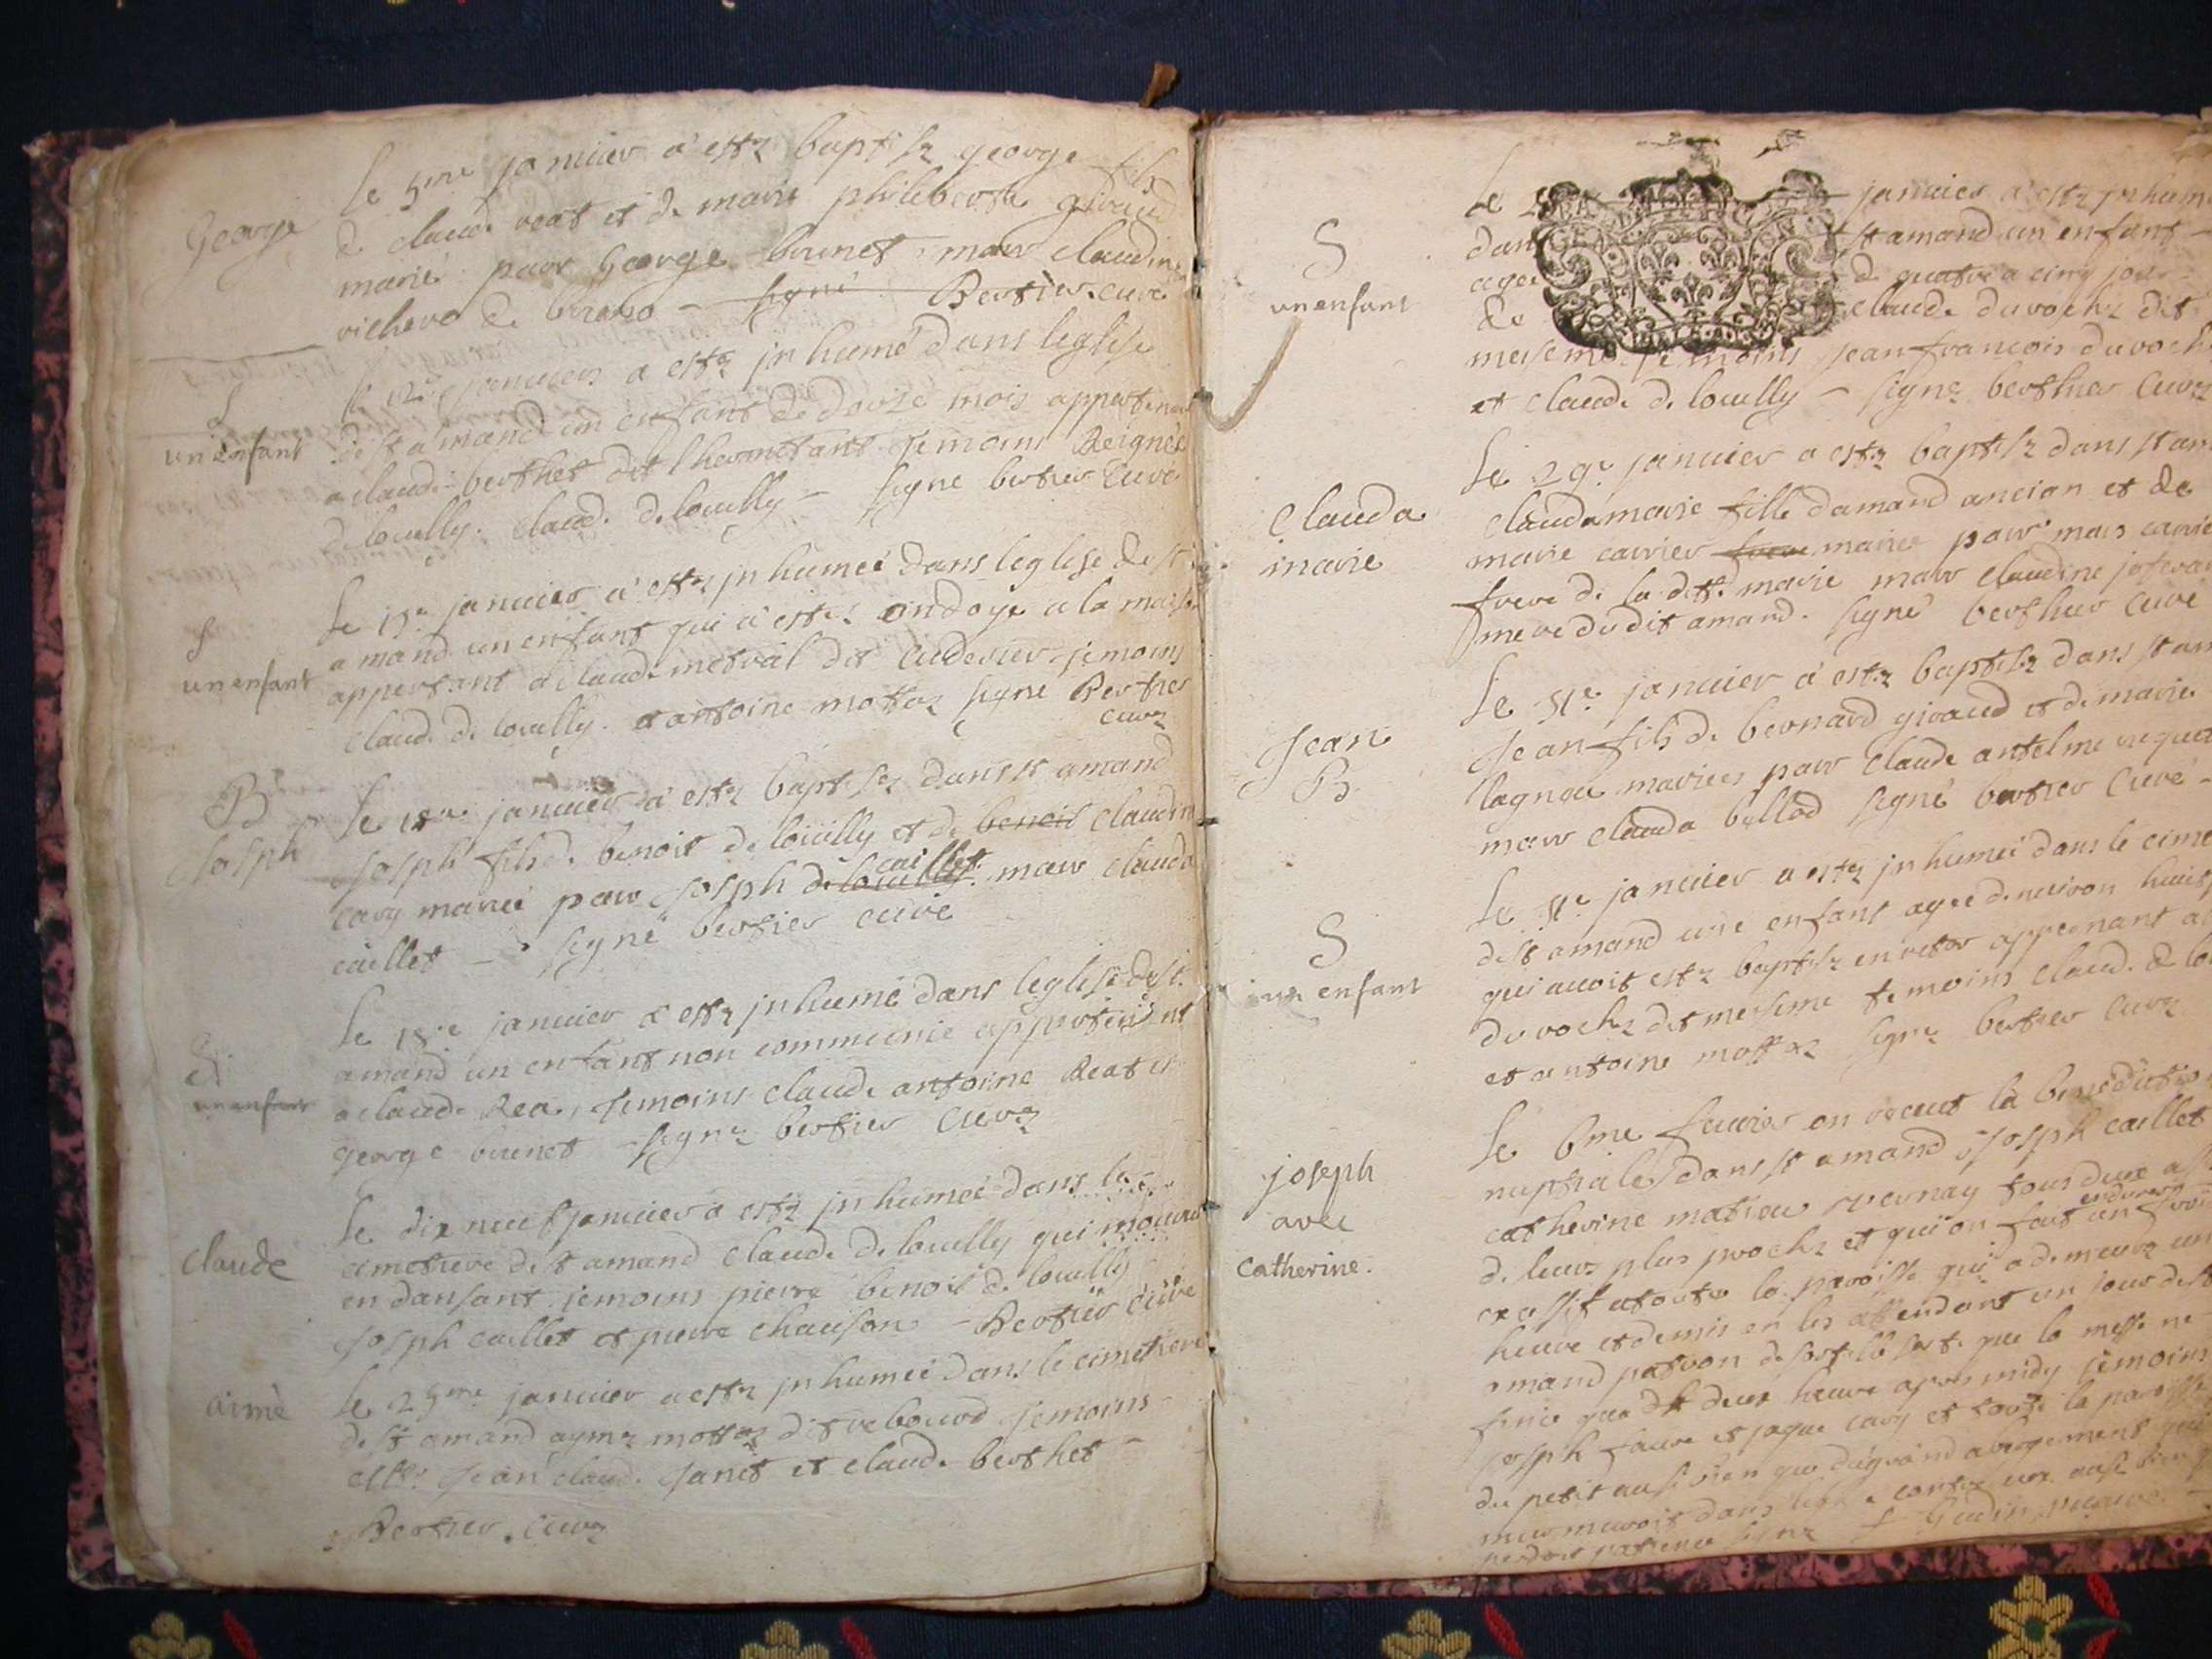 George
le 5me januier a estz baptisz george fils
de claude reat et de marie philiberte giraud
marié parr George brunet marr claudine
richero de - signé Bertier curé
S
un enfant
le 12e januier a estz jnhumé dans leglise
de st amand un enfant de douze mois appartenant
a claude berthet dit lhermitant temoins Reignée
de louilly. claude de louilly - signe bertier curé
S
un enfant
le 15e januier a estz jnhumée dans leglise de st
amand un enfant qui a estez ondoye a la maison
appertant a claude metral dit temoins
claude de louilly. et antoine mottaz signé Bertier
curz
B
Josph
le 18me januier a estz baptisz dans st amand
Josph fils de benoit de louilly et de benoit claudine
cary marieé parr Josph de louilly caillet marr clauda
caillet - signé bertier curé
S.
un enfant
le 18.e januier a estz jnhumé dans leglise de st.
amand un enfant non communié appartenent
a claude Rea, temoins claude antoine Reat et
george brunet - signz bertier curz
claude
le dix neuf januier a estz jnhumée dans le
cimetiere de st amand claude de louilly qui mourut
en dansant temoins pierre benoit de louilly
Josph caillet et pierre chanson - Bertier curé
aimé
le 25me januier a estz jnhumeé dans le cimetiere
de st amand aymz mottaz dit rebourd temoins
Jean claude Janet et claude berthet -
Bertier. curz
S
un enfant
le januier a estz jnhumé
dan st amand un enfant -
agee de quatre a cinq jour
de claude du rochz dit
meseme temoins Jean francois du roche
et claude de louilly - signz berthier curz
Clauda
marie
le 29e januier a estz baptisz dans st am
claudamarie fille damand ancian et de
marie carrier frere mariee parr marc carrier
frere de la ditte marie marr claudine
mere du dit amand. signé berthier curé
Jean
B
le 31e januier a estz baptisz dans st am
Jean fils de bernard giraud et de marie
lagnou mariees parr claude antelme
marr clauda bellod signé bertier curé -
S
un enfant
le 31e januier a estz jnhumeé dans le cime
de st amand une enfant agée denuiron huit
qui auoit estz baptisz en retor appernant a
du rochz dit mesieme temoins claude de lo
et antoine mottaz signz bertier curz
joseph
avec
catherine.
le 6me feurier on receut la benediction
nuptiale dans st amand Josph caillet
catherine matieu vernay tous deux
de leurs plus prochz et qui on fait endurer un froid
exassif a toute la paroisse qui a demeurz une
heure et demis en les attendant un jour de st
amand patron de sorte que la messe ne
finie que deux heure apres midy temoins
Josph faure et jaque cary et toute la paroisse
du petit ausi bien que du grand abergement
murmuroit dans contre eux ausi bien
perdoit patience signz